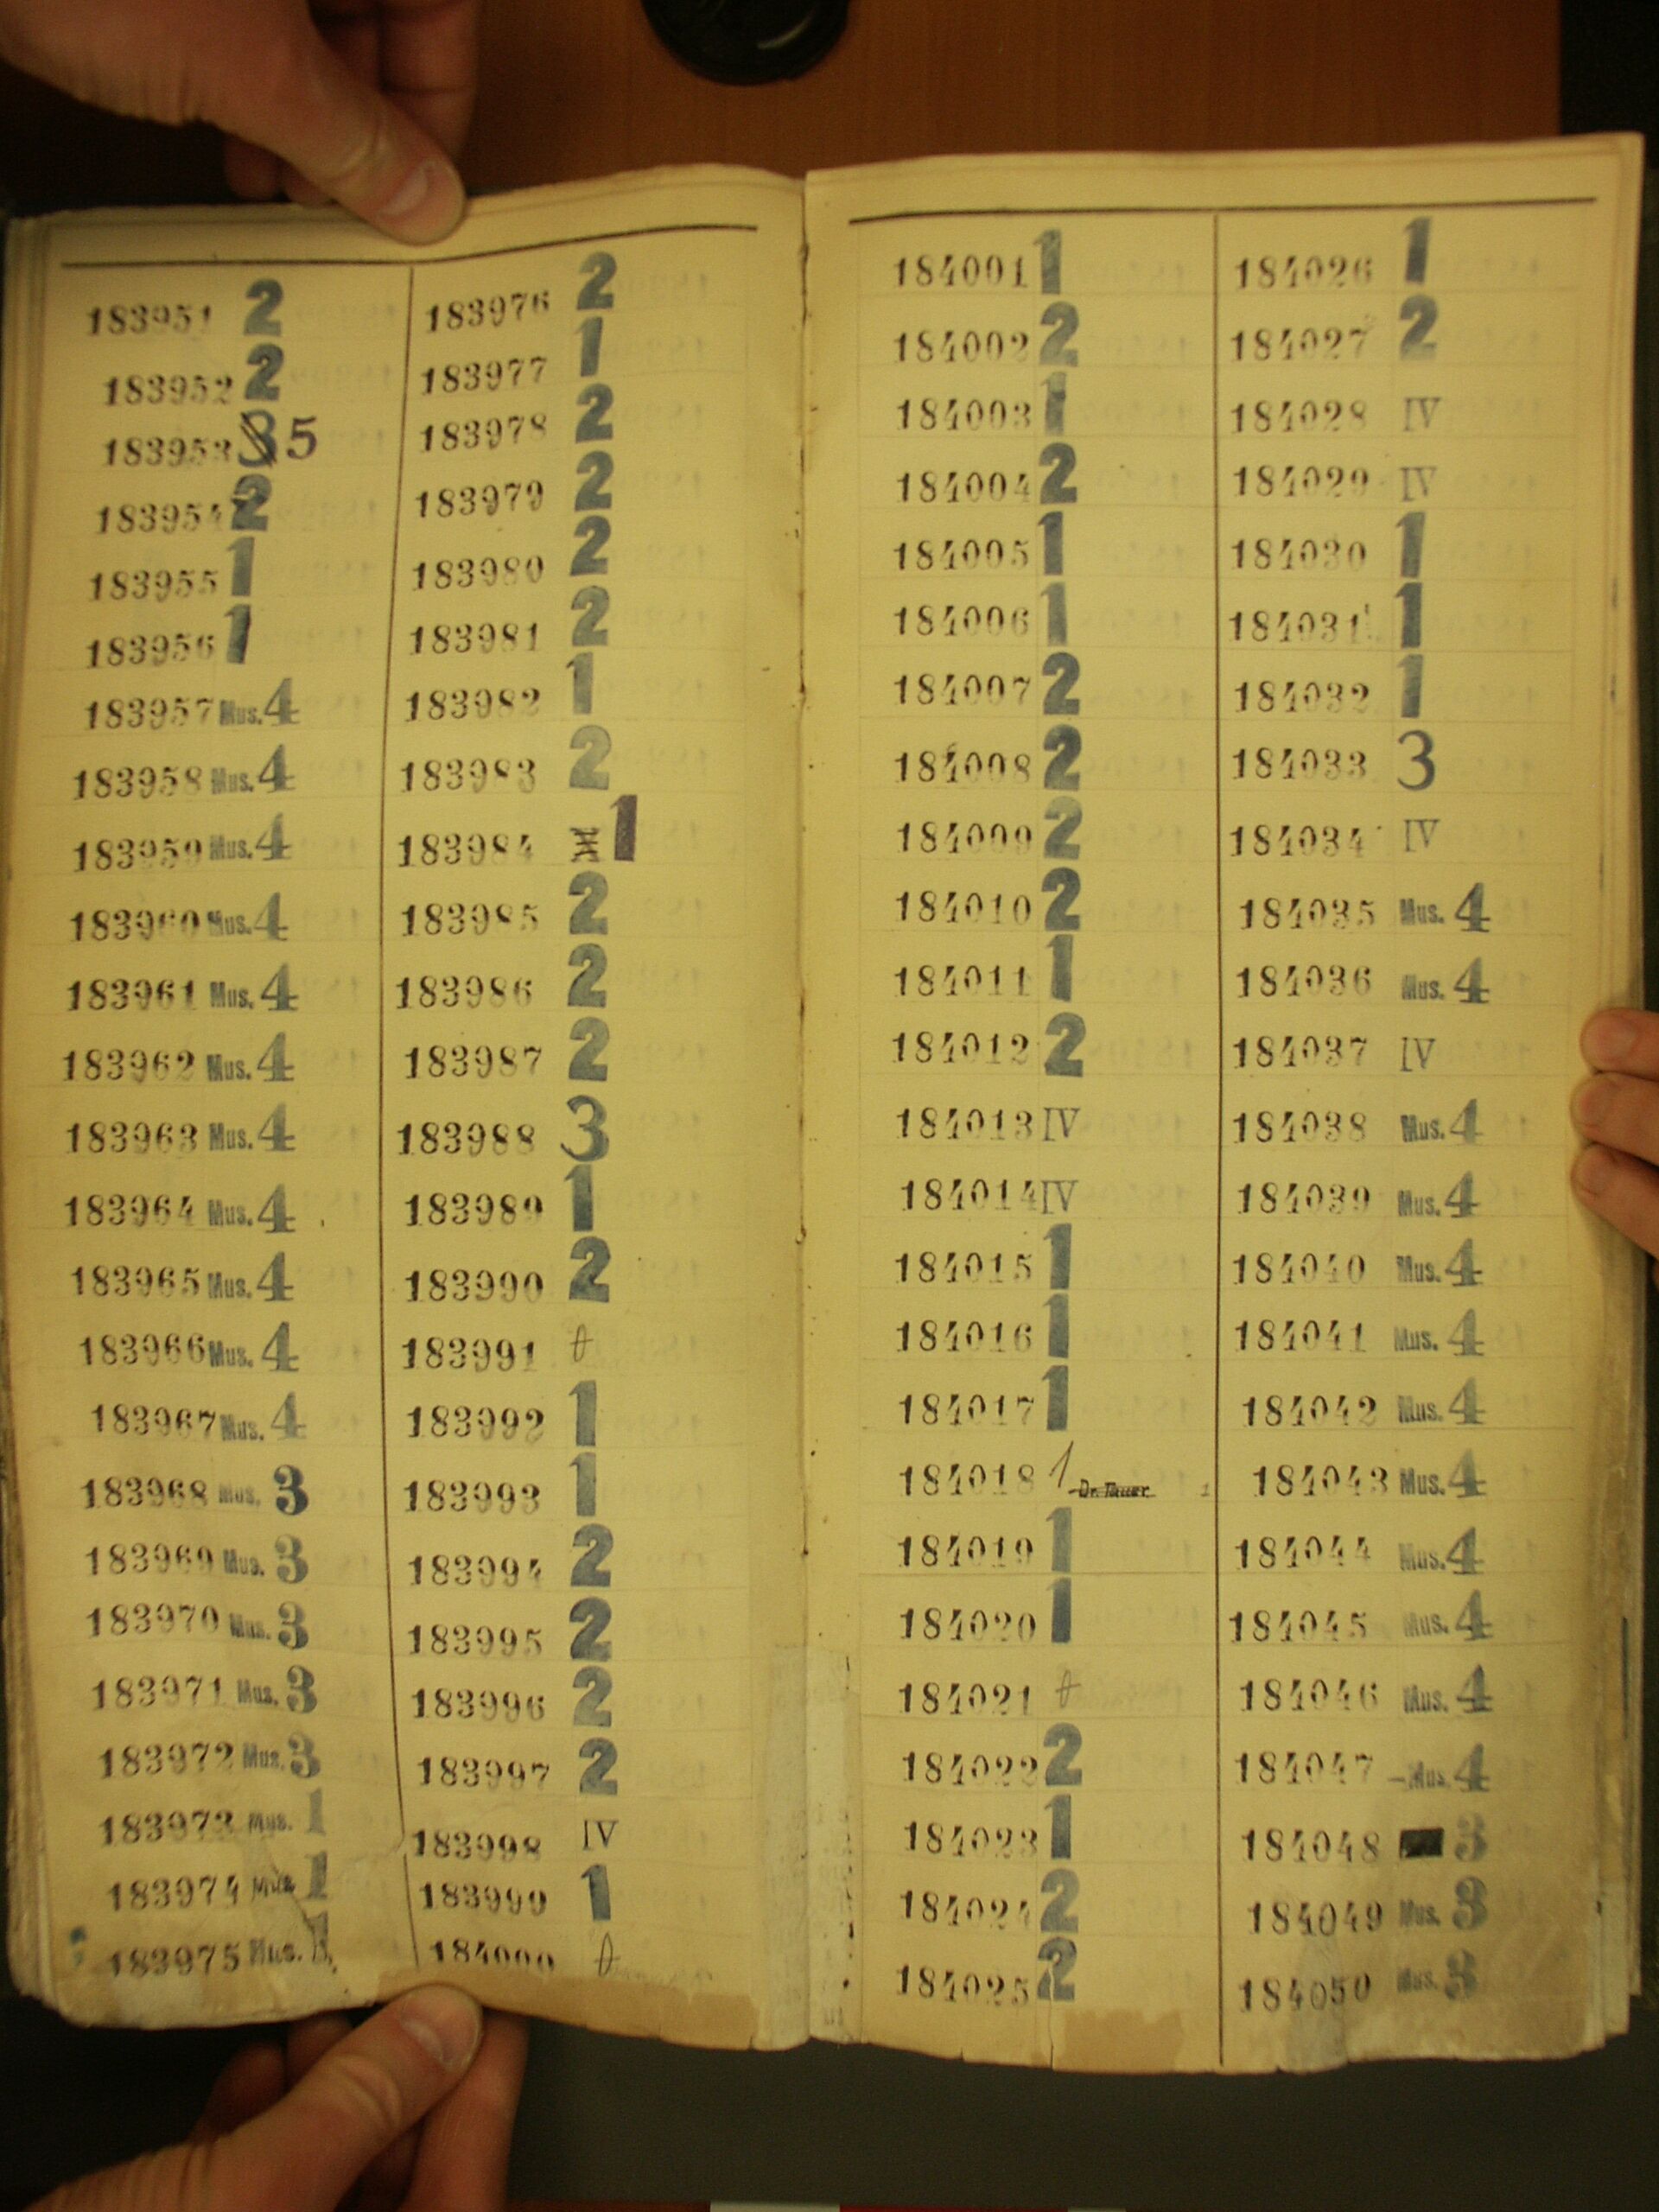 183951 2
183952 2
183953 3 5
183954 2
183955 1
183956 1
183957 Mus. 4
183958 Mus. 4
183959 Mus. 4
183960 Mus. 4
183961 Mus. 4
183962 Mus. 4
183963 Mus. 4
183964 Mus. 4
183965 Mus. 4
183966 Mus. 4
183967 Mus. 4
183968 Mus. 3
183969 Mus. 3
183970 Mus. 3
183971 Mus. 3
183972 Mus. 3
183973 Mus. 1
183974 Mus. 1
183975 Mus.
183976 2
183977 1
183978 2
183979 2
183980 2
183981 2
183982 1
183983 2
183984 1
183985 2
183986 2
183987 2
183988 3
183989 1
183990 2
183991
183992 1
183993 1
183994 2
183995 2
183996 2
183997 2
183998 IV
183999 1
184000
184001 1
184002 2
184003 1
184004 2
184005 1
184006 1
184007 2
184008 2
184009 2
184010 2
184011 1
184012 2
184013 IV
184014 IV
184015 1
184016 1
184017 1
184018 1
184019 1
184020 1
184021
184022 2
184023 1
184024 2
184025 2
184026 1
184027 2
184028 IV
184029 IV
184030 1
184031 1
184032 1
184033 3
184034 IV
184035 Mus. 4
184036 Mus. 4
184037 IV
184038 Mus. 4
184039 Mus. 4
184040 Mus. 4
184041 Mus. 4
184042 Mus. 4
184043 Mus. 4
184044 Mus. 4
184045 Mus. 4
184046 Mus. 4
184047 Mus. 4
184048 3
184049 Mus. 3
184050 Mus. 3